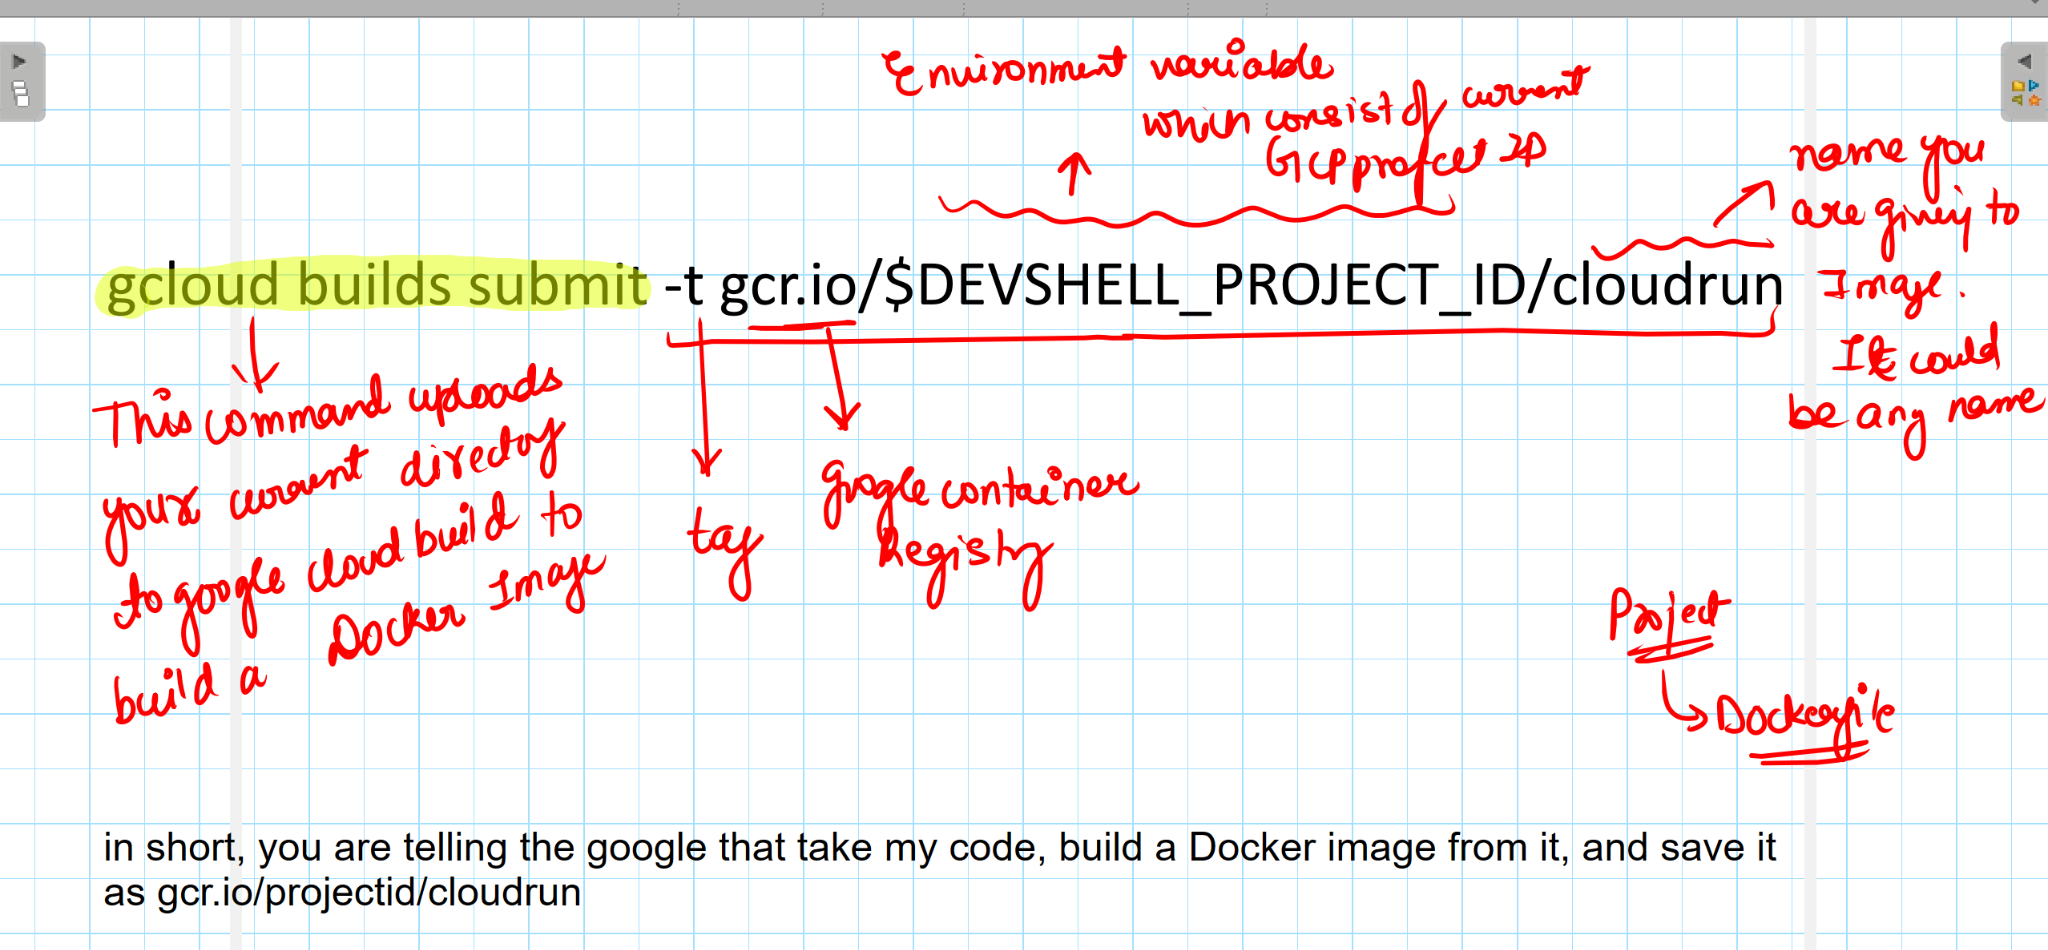 Environment variable
which consist of current
GCP project ID
name you
are giving to
Image.
It could
be any name
gcloud builds submit -t gcr.io/$DEVSHELL_PROJECT_ID/cloudrun
This command uploads
your current directory
to google cloud build to
build a Docker Image
tag
google container
Registry
Project
Dockerfile
in short, you are telling the google that take my code, build a Docker image from it, and save it
as gcr.io/projectid/cloudrun